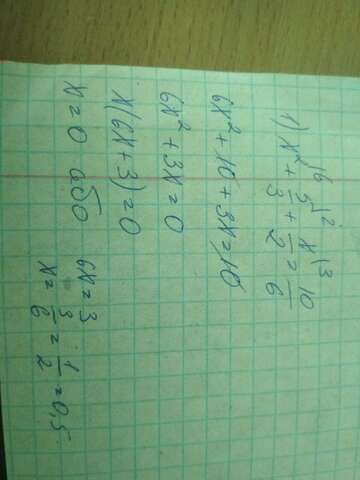 1) x² ⁽⁶ + 5/3 ⁽² + x/2 ⁽³ = 10/6
6x² + 10 + 3x = 10
6x² + 3x = 0
x(6x+3) = 0
x = 0 або 6x = 3
x = 3/6 = 1/2 = 0,5